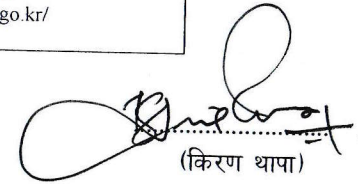 go.kr/
(किरण थापा)